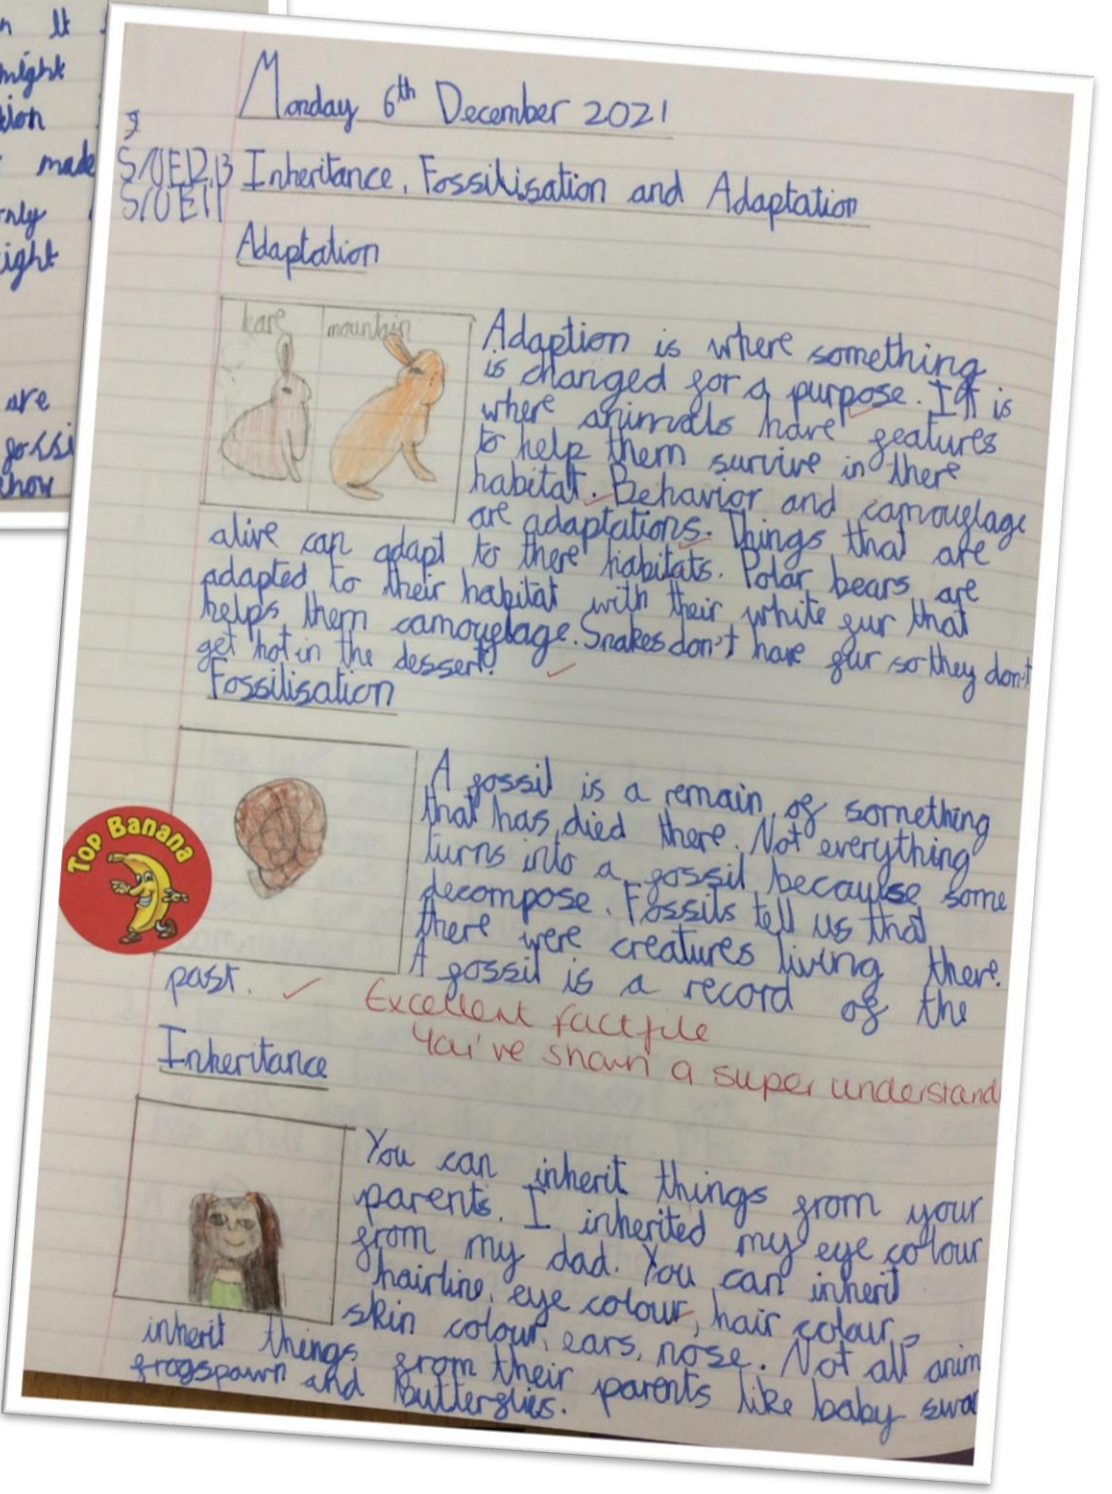 n It
might
tion
made
only
ight
are
fossi
show
Monday 6th December 2021
S/UE12,13 Inheritance, Fossilisation and Adaptation
S/UE11
Adaptation
hare mountain
Adaption is where something
is changed for a purpose. It is
where animals have features
to help them survive in there
habitat. Behavior and camouflage
are adaptations. Things that are
alive can adapt to there habitats. Polar bears are
adapted to their habitat with their white fur that
helps them camouflage. Snakes don't have fur so they don't
get hot in the dessert!
Fossilisation
A fossil is a remain of something
that has died there. Not everything
turns into a fossil because some
decompose. Fossils tell us that
there were creatures living there.
A fossil is a record of the
past.
Top Banana
Excellent factfile
You've shown a super understand
Inheritance
You can inherit things from your
parents. I inherited my eye colour
from my dad. You can inherit
hairline, eye colour, hair colour,
skin colour, ears, nose. Not all anim
inherit things from their parents like baby swa
frogspawn and butterflies.